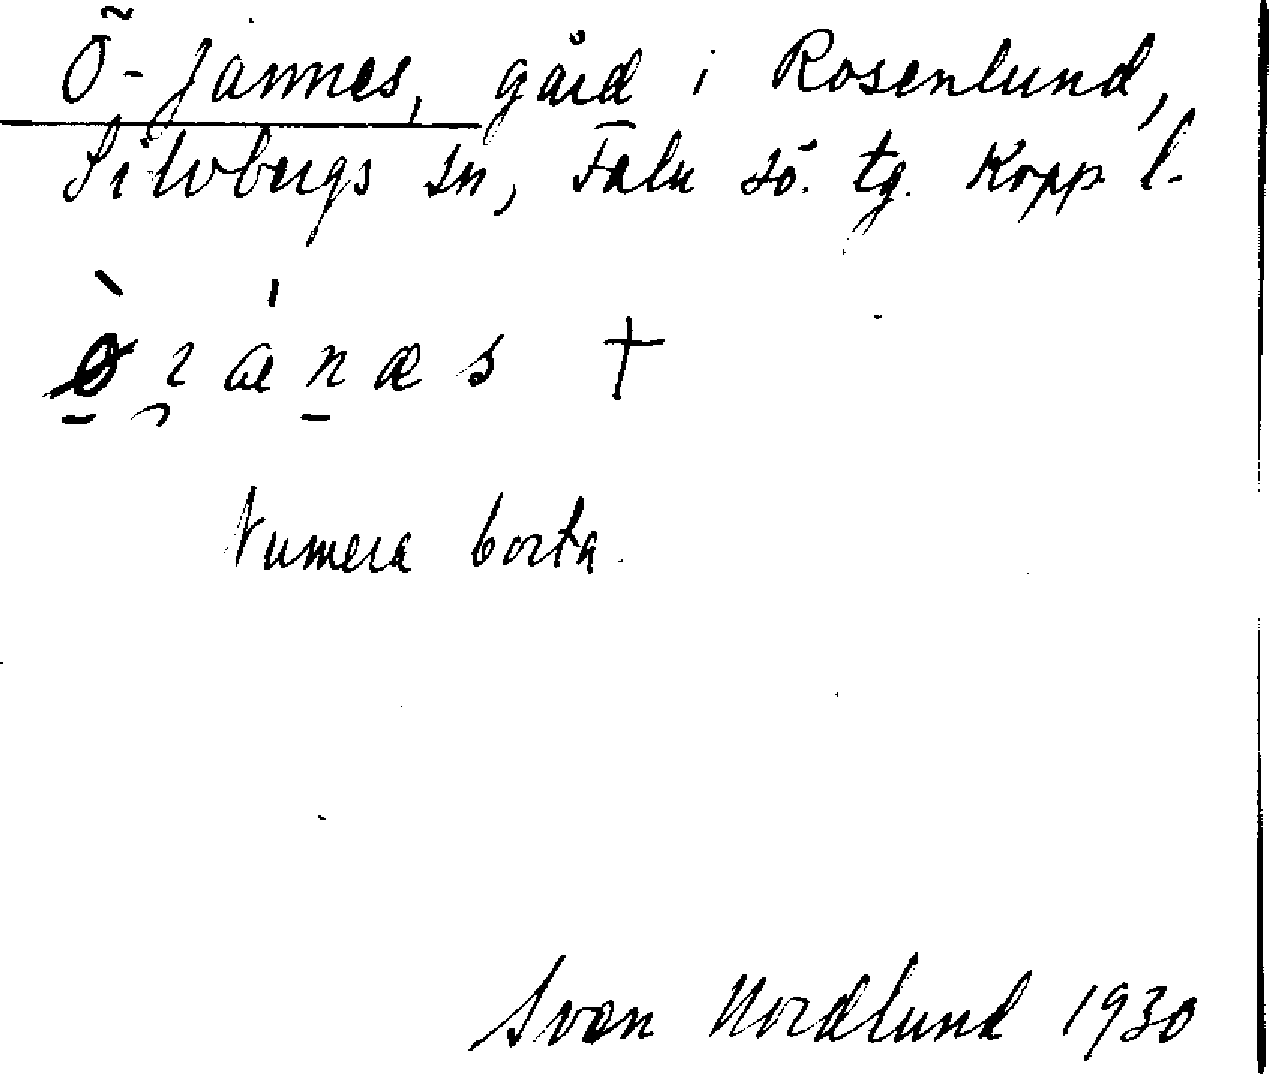 Ö-jannes, gård i Rosenlund,
Silvbergs sn, Falu sö. tg. Kopp l.
Numera borta.
Sven Nordlund 1930